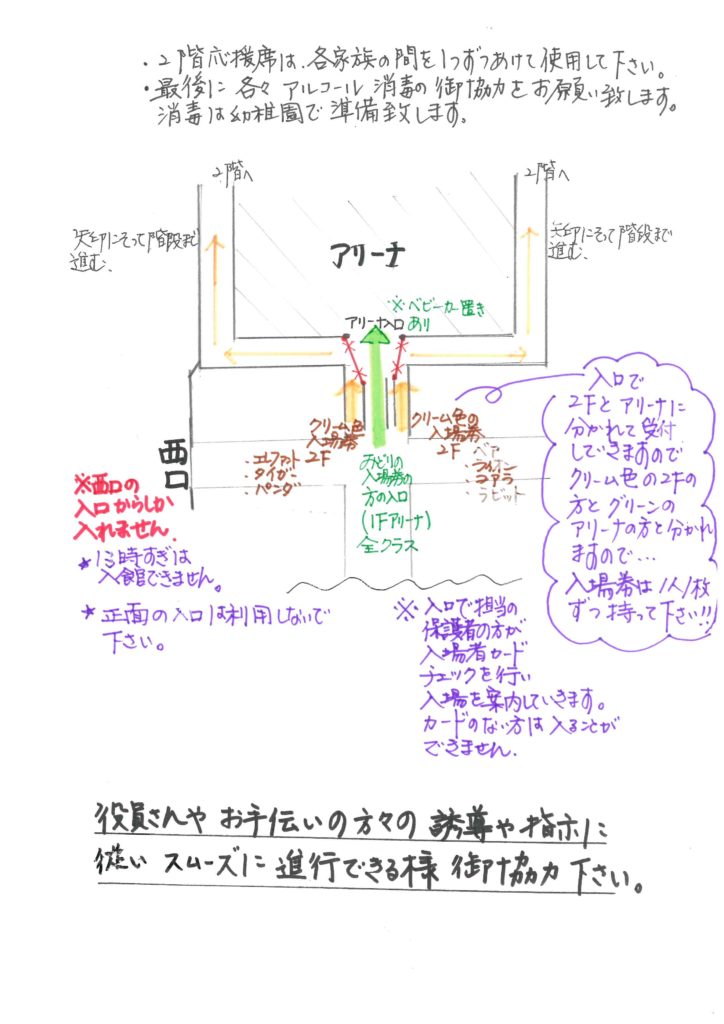 ・2階応援席は、各家族の間を1つずつあけて使用して下さい。
・最後に各々アルコール消毒の御協力をお願い致します。
消毒は幼稚園で準備致します。
2階へ
2階へ
矢印にそって階段まで
進む。
矢印にそって階段まで
進む。
アリーナ
※ベビーカー置き
あり
アリーナ入口
クリーム色の
入場券
2F
・エレファント
・タイガー
・パンダ
クリーム色の
入場券
2F
・ベア
・ライオン
・コアラ
・ラビット
みどりの
入場券の
方の入口
(1Fアリーナ)
全クラス
西口
※西口の
入口からしか
入れません。
*13時すぎは
入館できません。
*正面の入口は利用しないで
下さい。
入口で
2Fとアリーナに
分かれて受付
してきますので
クリーム色の2Fの
方とグリーンの
アリーナの方と分かれ
ますので…
入場券は1人1枚
ずつ持って下さい!!
※入口で担当の
保護者の方が
入場者カード
チェックを行い
入場を案内していきます。
カードのない方は入ることが
できません。
役員さんやお手伝いの方々の誘導や指示に
従いスムーズに進行できる様御協力下さい。